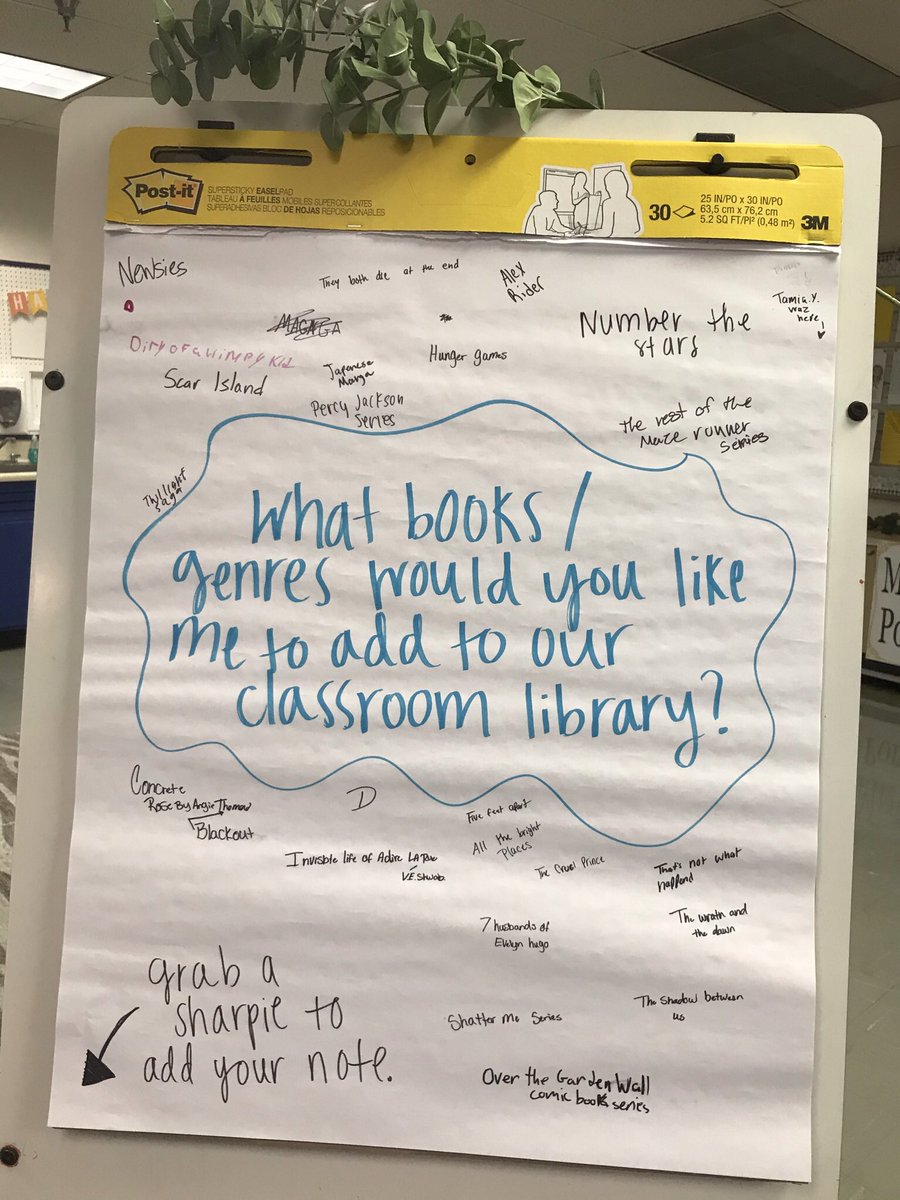 Post-it
SUPERSTICKY EASELPAD
TABLEAU À FEUILLES MOBILES SUPER COLLANTES
SUPERADHESIVAS BLOC DE HOJAS REPOSICIONABLES
30
25 IN/PO x 30 IN/PO
63,5 cm x 76,2 cm
5.2 SQ FT/PI² (0,48 m²)
3M
Newsies
They both die at the end
Alex
Rider
Tamia.Y.
waz
here!
MAGAGA
Number the
stars
Diry of a wimpy Kid
Scar Island
Japanese
Manga
Hunger games
Percy Jackson
Series
the rest of the
Maze runner
Series
Thyllight
saga
What books/
genres would you like
me to add to our
classroom library?
Concrete
Rose By Angie Thomas
Blackout
D
Five feet apart
All the bright
Places
Invisible life of Adire LA Rue
V.E. Shwab.
The Cruel Prince
That's not what
happend
7 husbands of
Evelyn hugo
The wrath and
the dawn
grab a
sharpie to
add your note.
Shatter Me Series
The Shadow between
us
Over the Garden Wall
comic books series
HA
M
Po